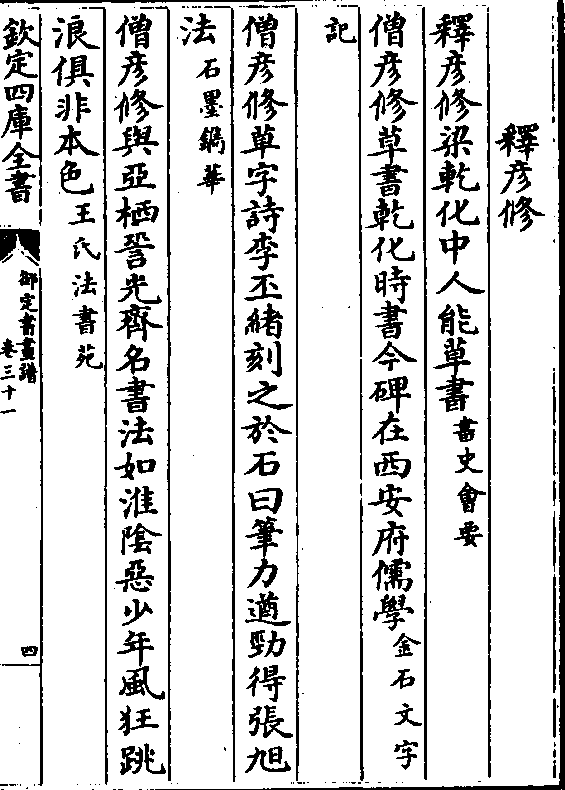 釋彦修
釋彦修梁乾化中人能草書書史會要
僧彦修草書乾化時書今碑在西安府儒學金石文字
記
僧彦修草字詩李丕緒刻之於石曰筆力遒勁得張旭
法石墨鐫華
僧彦修與亞栖䛒光齊名書法如淮陰惡少年風狂跳
浪俱非本色王氏法書苑
欽定四庫全書
御定書畫譜
卷三十一
四